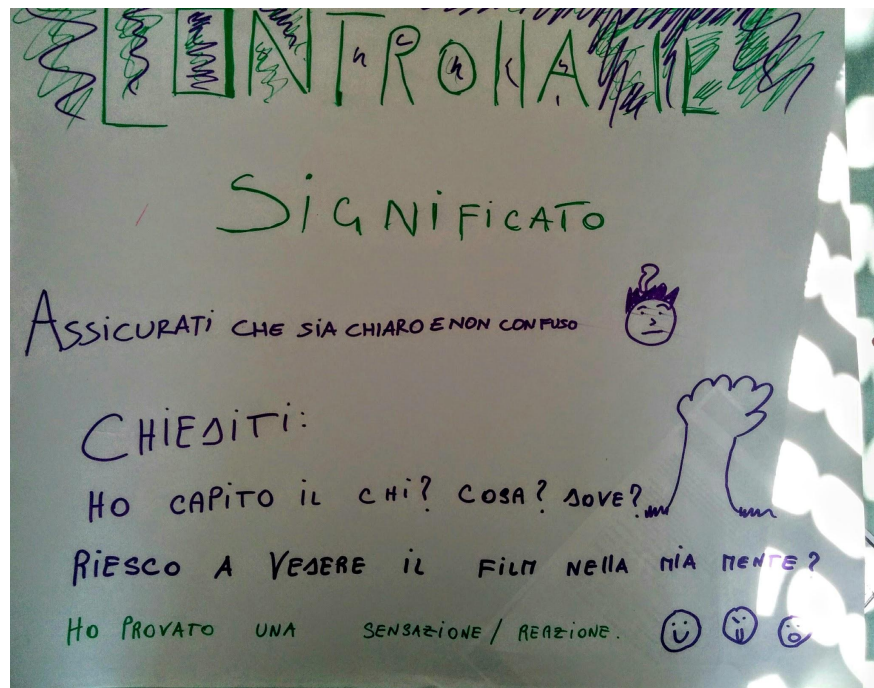 CONTROLLARE
SiGNiFiCATO
ASSiCURATi CHE SiA CHIARO E NON CONFUSO
?
CHiEDiTi:
HO CAPiTO iL CHi? COSA? DOVE?
RiESCO A VEDERE iL FiLM NELLA MiA MENTE?
HO PROVATO UNA SENSAZiONE / REAZiONE.